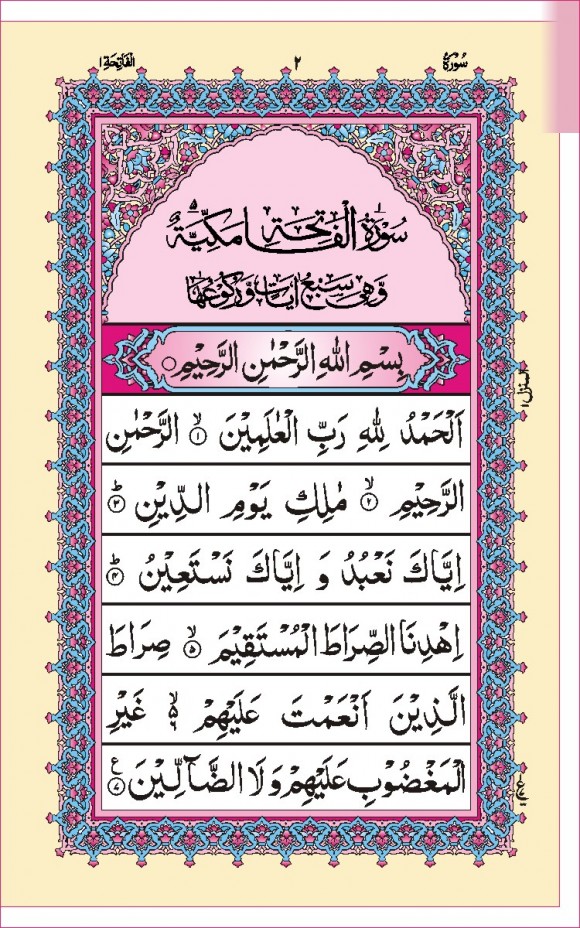 سُوْرَةُ ٢ الْفَاتِحَةِ ١
سُوْرَةُ الْفَاتِحَةِ مَكِّيَّةٌ
وَّهِیَ سَبْعُ اٰيَاتٍ وَّرُكُوْعُهَا
بِسْمِ اللّٰهِ الرَّحْمٰنِ الرَّحِيْمِ
اَلْحَمْدُ لِلّٰهِ رَبِّ الْعٰلَمِيْنَ ۙ﴿١﴾ الرَّحْمٰنِ
الرَّحِيْمِ ۙ﴿٢﴾ مٰلِكِ يَوْمِ الدِّيْنِ ؕ﴿٣﴾
اِيَّاكَ نَعْبُدُ وَ اِيَّاكَ نَسْتَعِيْنُ ؕ﴿٤﴾
اِهْدِنَا الصِّرَاطَ الْمُسْتَقِيْمَ ۙ﴿٥﴾ صِرَاطَ
الَّذِيْنَ اَنْعَمْتَ عَلَيْهِمْ ۙ٦ غَيْرِ
الْمَغْضُوْبِ عَلَيْهِمْ وَ لَا الضَّآلِّيْنَ ﴿٧﴾ ع
المنزل ١